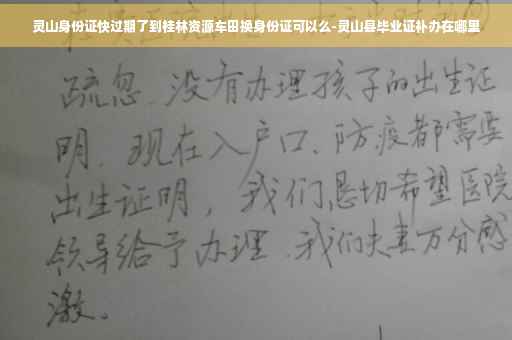 灵山身份证快过期了到桂林资源车田换身份证可以么-灵山县毕业证补办在哪里
疏忽、没有办理孩子的出生证
明、现在入户口、防疫都需要
出生证明，我们恳切希望医院
领导给予办理、我们夫妻万分感
激。